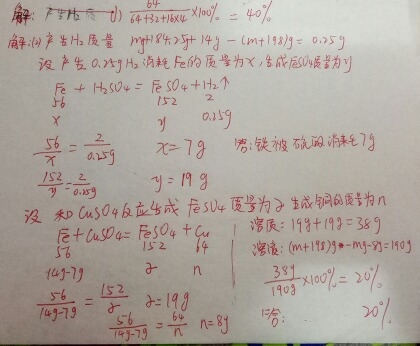 解: 产生H₂质 (1) 64/(64+32+16×4) ×100% = 40%
解:(2) 产生H₂质量 mg+184.25g+14g-(m+198)g = 0.25g
设产生0.25gH₂消耗Fe的质量为x,生成FeSO₄质量为y
Fe + H₂SO₄ = FeSO₄ + H₂↑
56 152 2
x y 0.25g
56/x = 2/0.25g x=7g 答:铁被硫酸消耗7g
152/y = 2/0.25g y=19g
设和CuSO₄反应生成FeSO₄质量为z 生成铜的质量为n
Fe+CuSO₄=FeSO₄+Cu
56 152 64
14g-7g z n
56/(14g-7g) = 152/z z=19g
56/(14g-7g) = 64/n n=8g
溶质: 19g+19g=38g
溶液: (m+198)g-mg-8g=190g
38g/190g ×100% = 20%
答: 20%